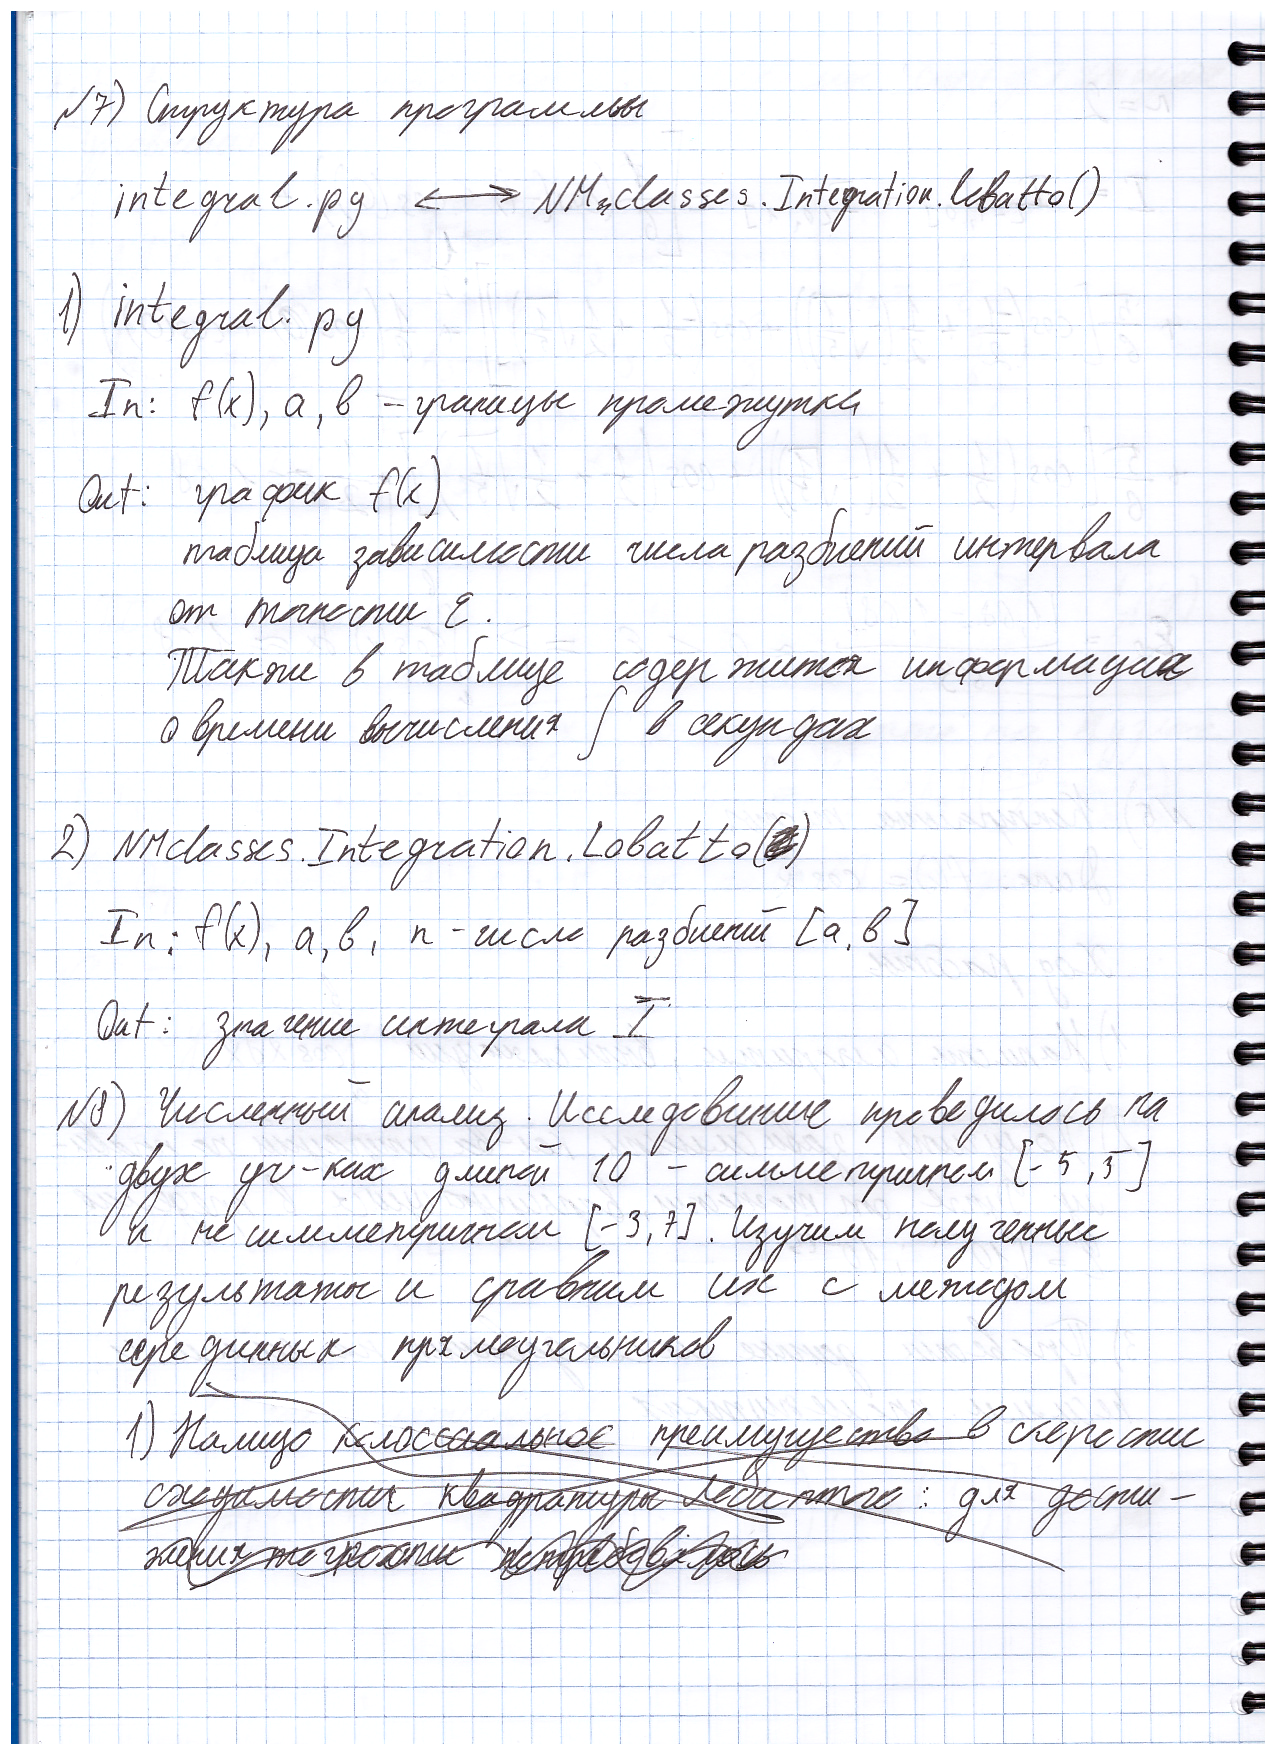 №7) Структура программы
integral.py ⟷ NMclasses.Integration.lobatto()
1) integral.py
In: f(x), a, b - границы промежутка
Out: график f(x)
таблица зависимости числа разбиений интервала
от точности ε.
Также в таблице содержится информация
о времени вычисления ∫ в секундах
2) NMclasses.Integration.Lobatto()
In: f(x), a, b, n - число разбиений [a, b]
Out: значение интеграла I
№8) Численный анализ. Исследование проводилось на
двух уч-ках длиной 10 - симметричном [-5, 5]
и не симметричном [-3, 7]. Изучим полученные
результаты и сравним их с методом
серединных прямоугольников
1) Налицо колоссальное преимущество в скорости
сходимости квадратуры Лобатто: для дости-
жения точности потребовалось